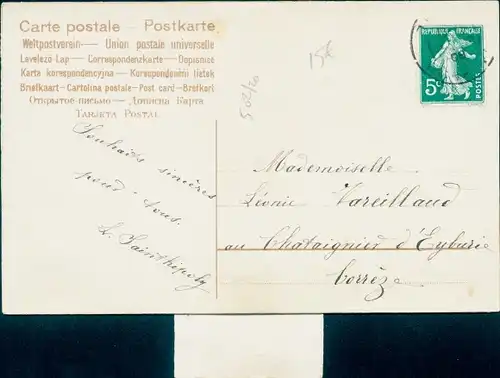 Carte postale – Postkarte
Weltpostverein — Union postale universelle
Levelező Lap — Correspondenzkarte — Dopisnice
Karta korespondencyjna — Korespondenčni listek
Brefkaart — Cartolina postale — Post card — Brefkort
Открытое письмо — Дописна Карта
Tarjeta Postal
Souhaits sincères
pour tous.
15€
RÉPUBLIQUE FRANÇAISE
5c
POSTES
Mademoiselle
Léonie Vareillaud
au Chataignier d'Eyburie
Corrèze